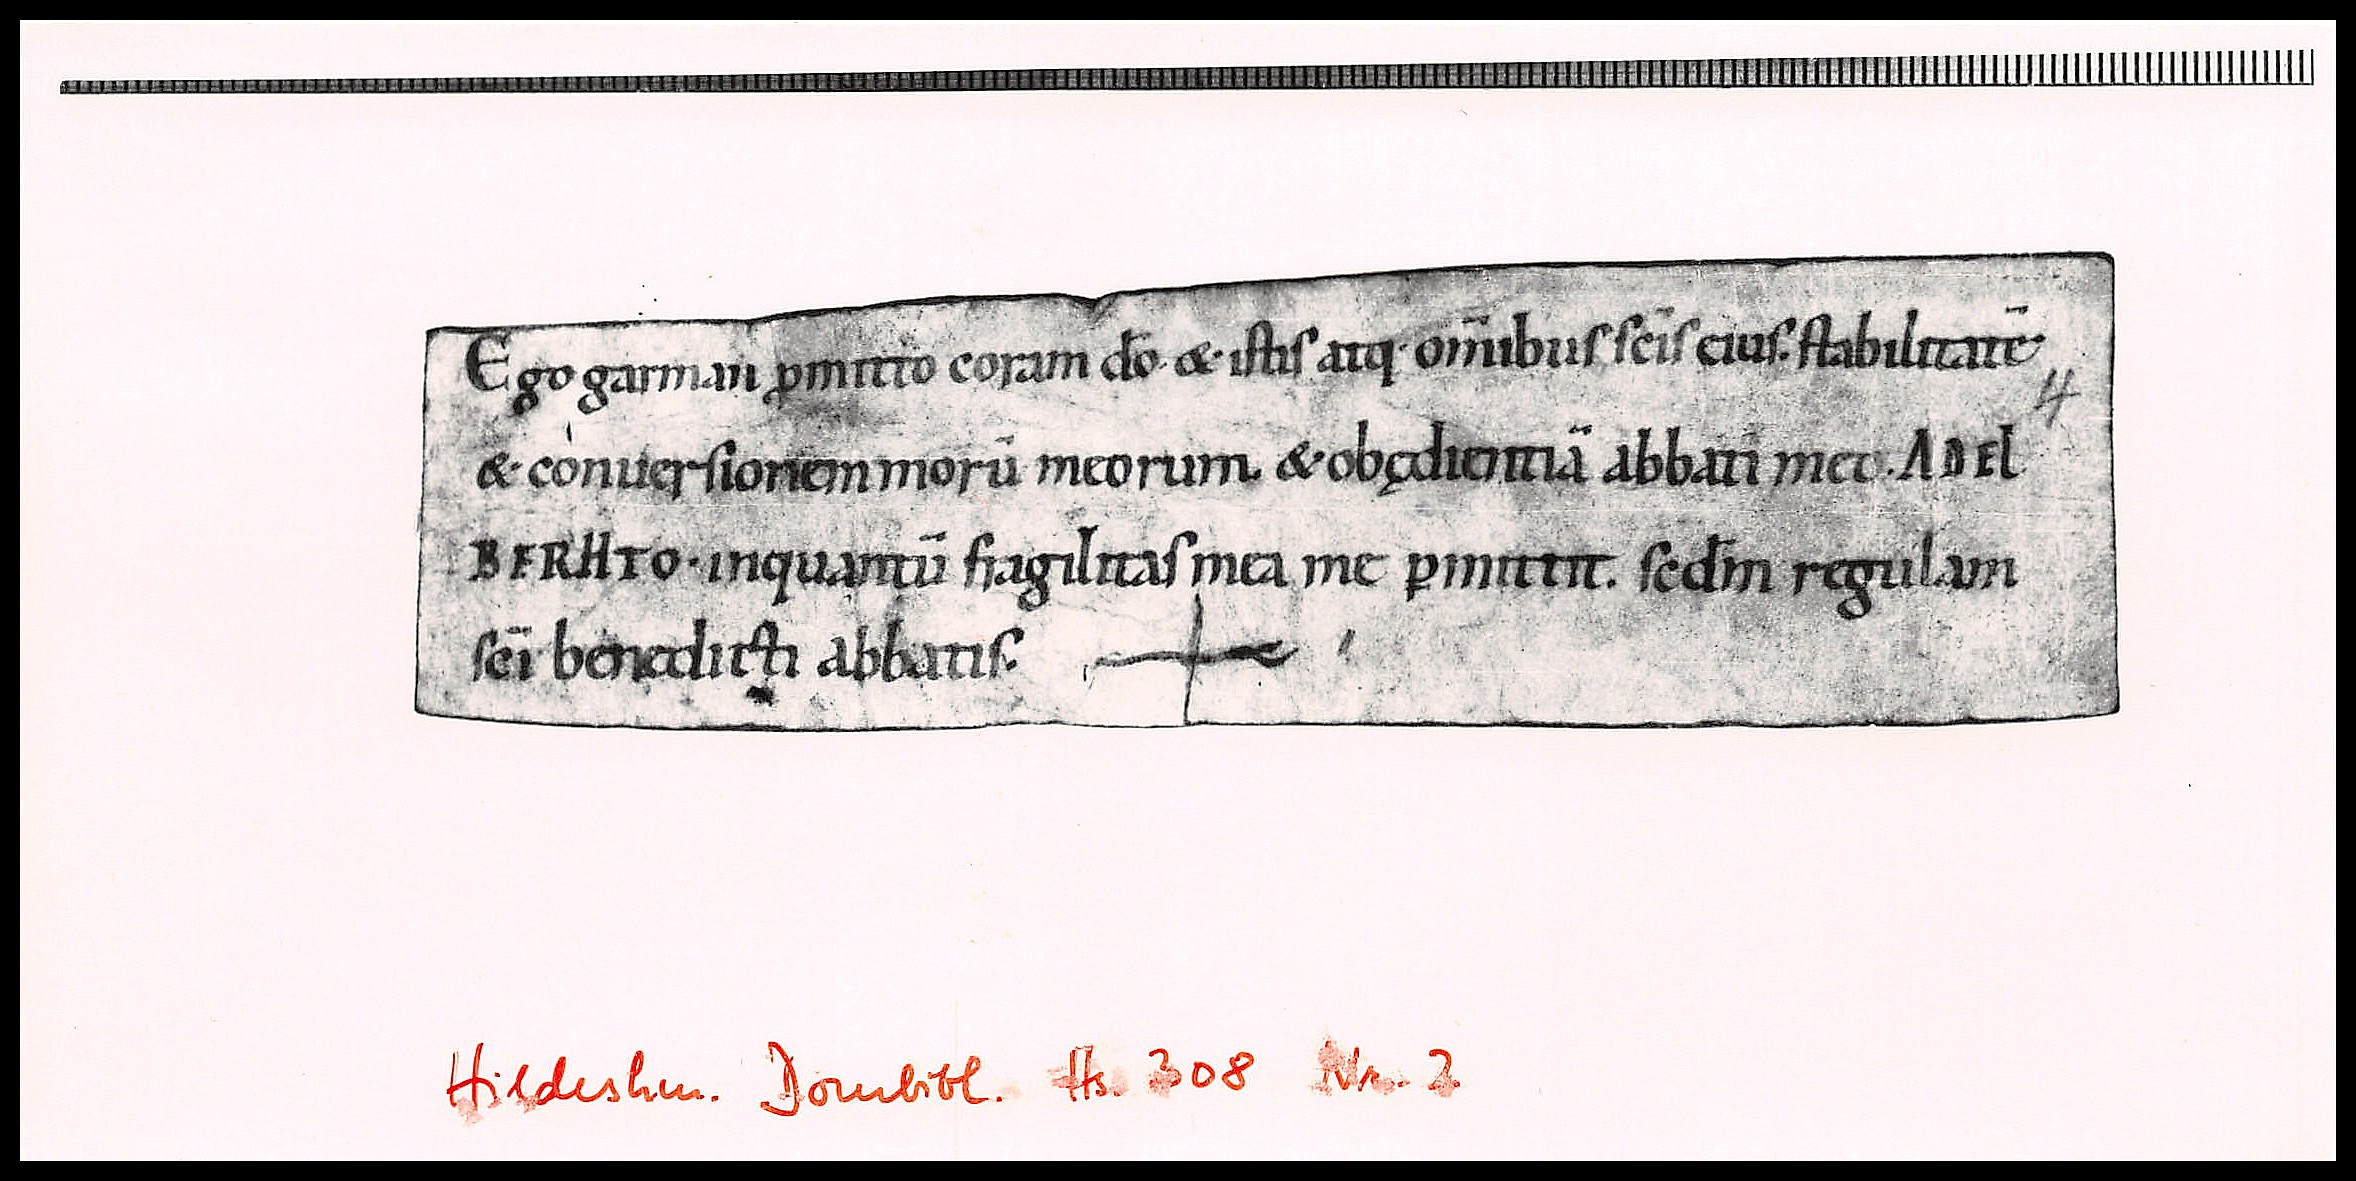 Ego garman ꝓmitto coram dō· &· istis atq· om̄ibus sc̄is eius. stabilitatē·
4
&· conuersionem morū meorum &· obędientiā abbati meo. ADEL
BERHTO· inquantū fragilitas mea me ꝑmittit. scd̄m regulam
sc̄i benedicti abbatis.
Hildeshm. Dombibl. Hs. 308 Nr. 2